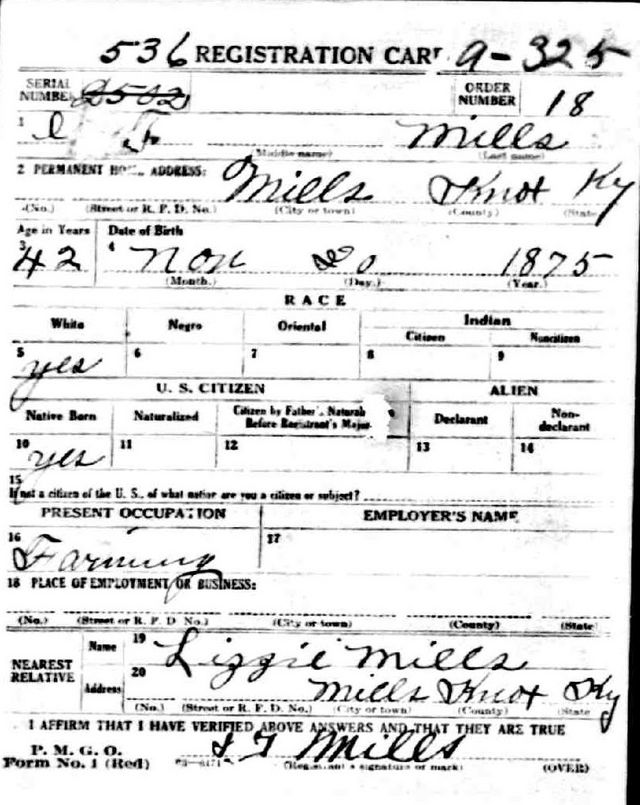 536 REGISTRATION CARD 9-325
SERIAL NUMBER 2502 ORDER NUMBER 18
1 Mills
(Middle name) (Last name)
2 PERMANENT HOME ADDRESS: Mills Knot Ky
(No.) (Street or R. F. D. No.) (City or town) (County) (State
Age in Years Date of Birth
3 42 4 Nov 1875
(Month.) (Day.) (Year.)
RACE
White Negro Oriental Indian
Citizen Noncitizen
5 yes 6 7 8 9
U. S. CITIZEN ALIEN
Native Born Naturalized Citizen by Father's Naturali Before Registrant's Major Declarant Non-declarant
10 yes 11 12 13 14
15
If not a citizen of the U. S., of what nation are you a citizen or subject?
PRESENT OCCUPATION EMPLOYER'S NAME
16 Farming 17
18 PLACE OF EMPLOYMENT OR BUSINESS:
(No.) (Street or R. F. D No.) (City or town) (County) (State)
NEAREST RELATIVE Name 19 Lizzie Mills
Address 20 Mills Knot Ky
(No.) (Street or R. F. D. No.) (City or town) (County) (State
I AFFIRM THAT I HAVE VERIFIED ABOVE ANSWERS AND THAT THEY ARE TRUE
P. M. G. O.
Form No. 1 (Red) Mills
(Registrant's signature or mark) (OVER)